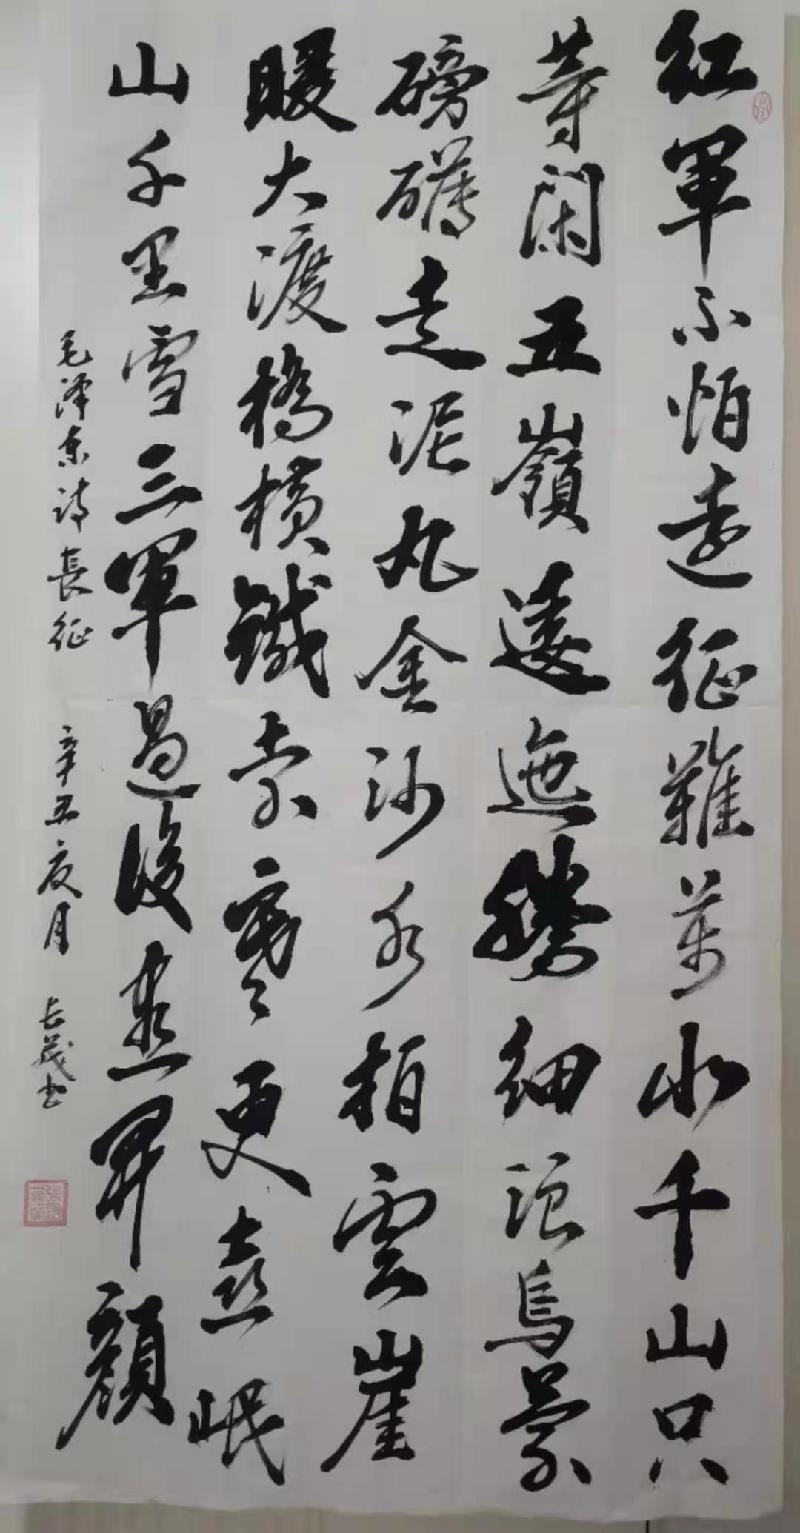 紅軍不怕遠征難萬水千山只
等閑五嶺逶迤騰細浪烏蒙
磅礴走泥丸金沙水拍雲崖
暖大渡橋橫鐵索寒更喜岷
山千里雪三軍過後盡開顏
毛泽东诗長征 辛丑夜月 长茂书